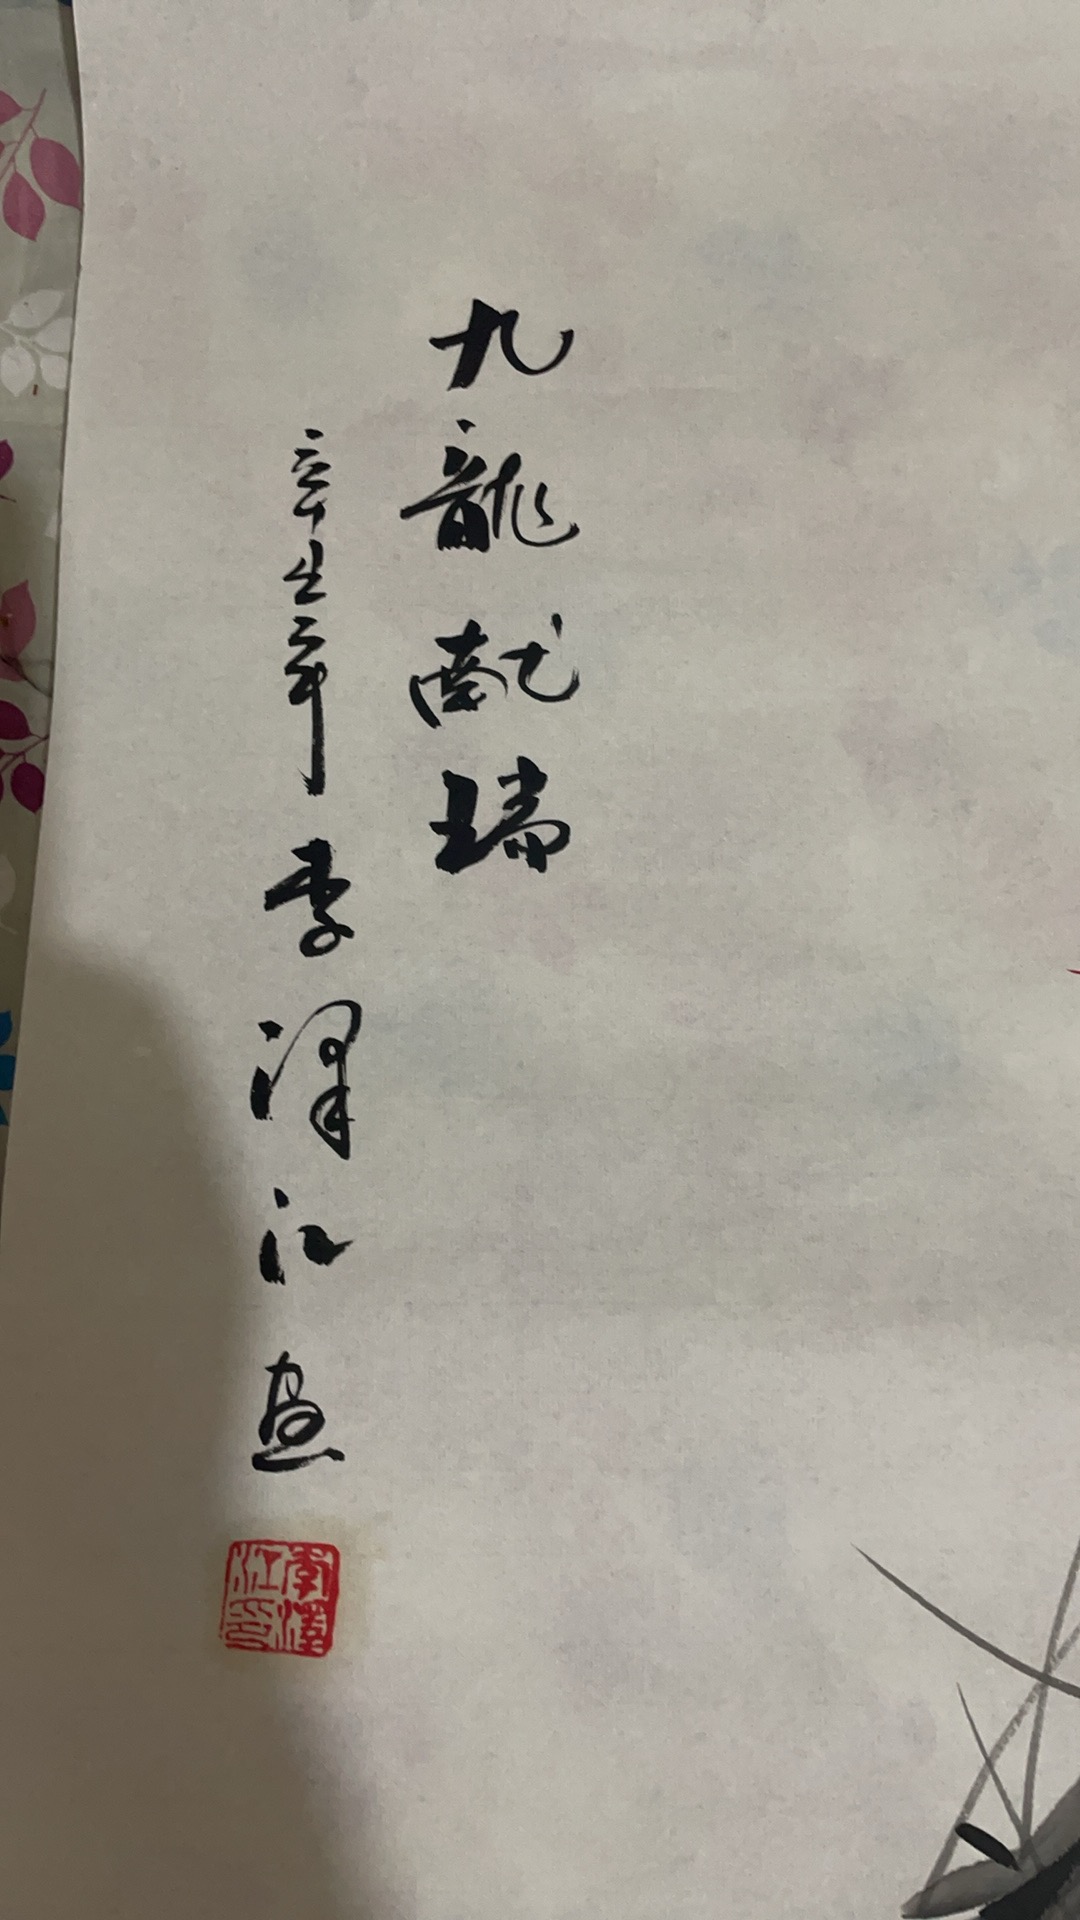 九龍献瑞
辛丑年李泽江画
李澤江印